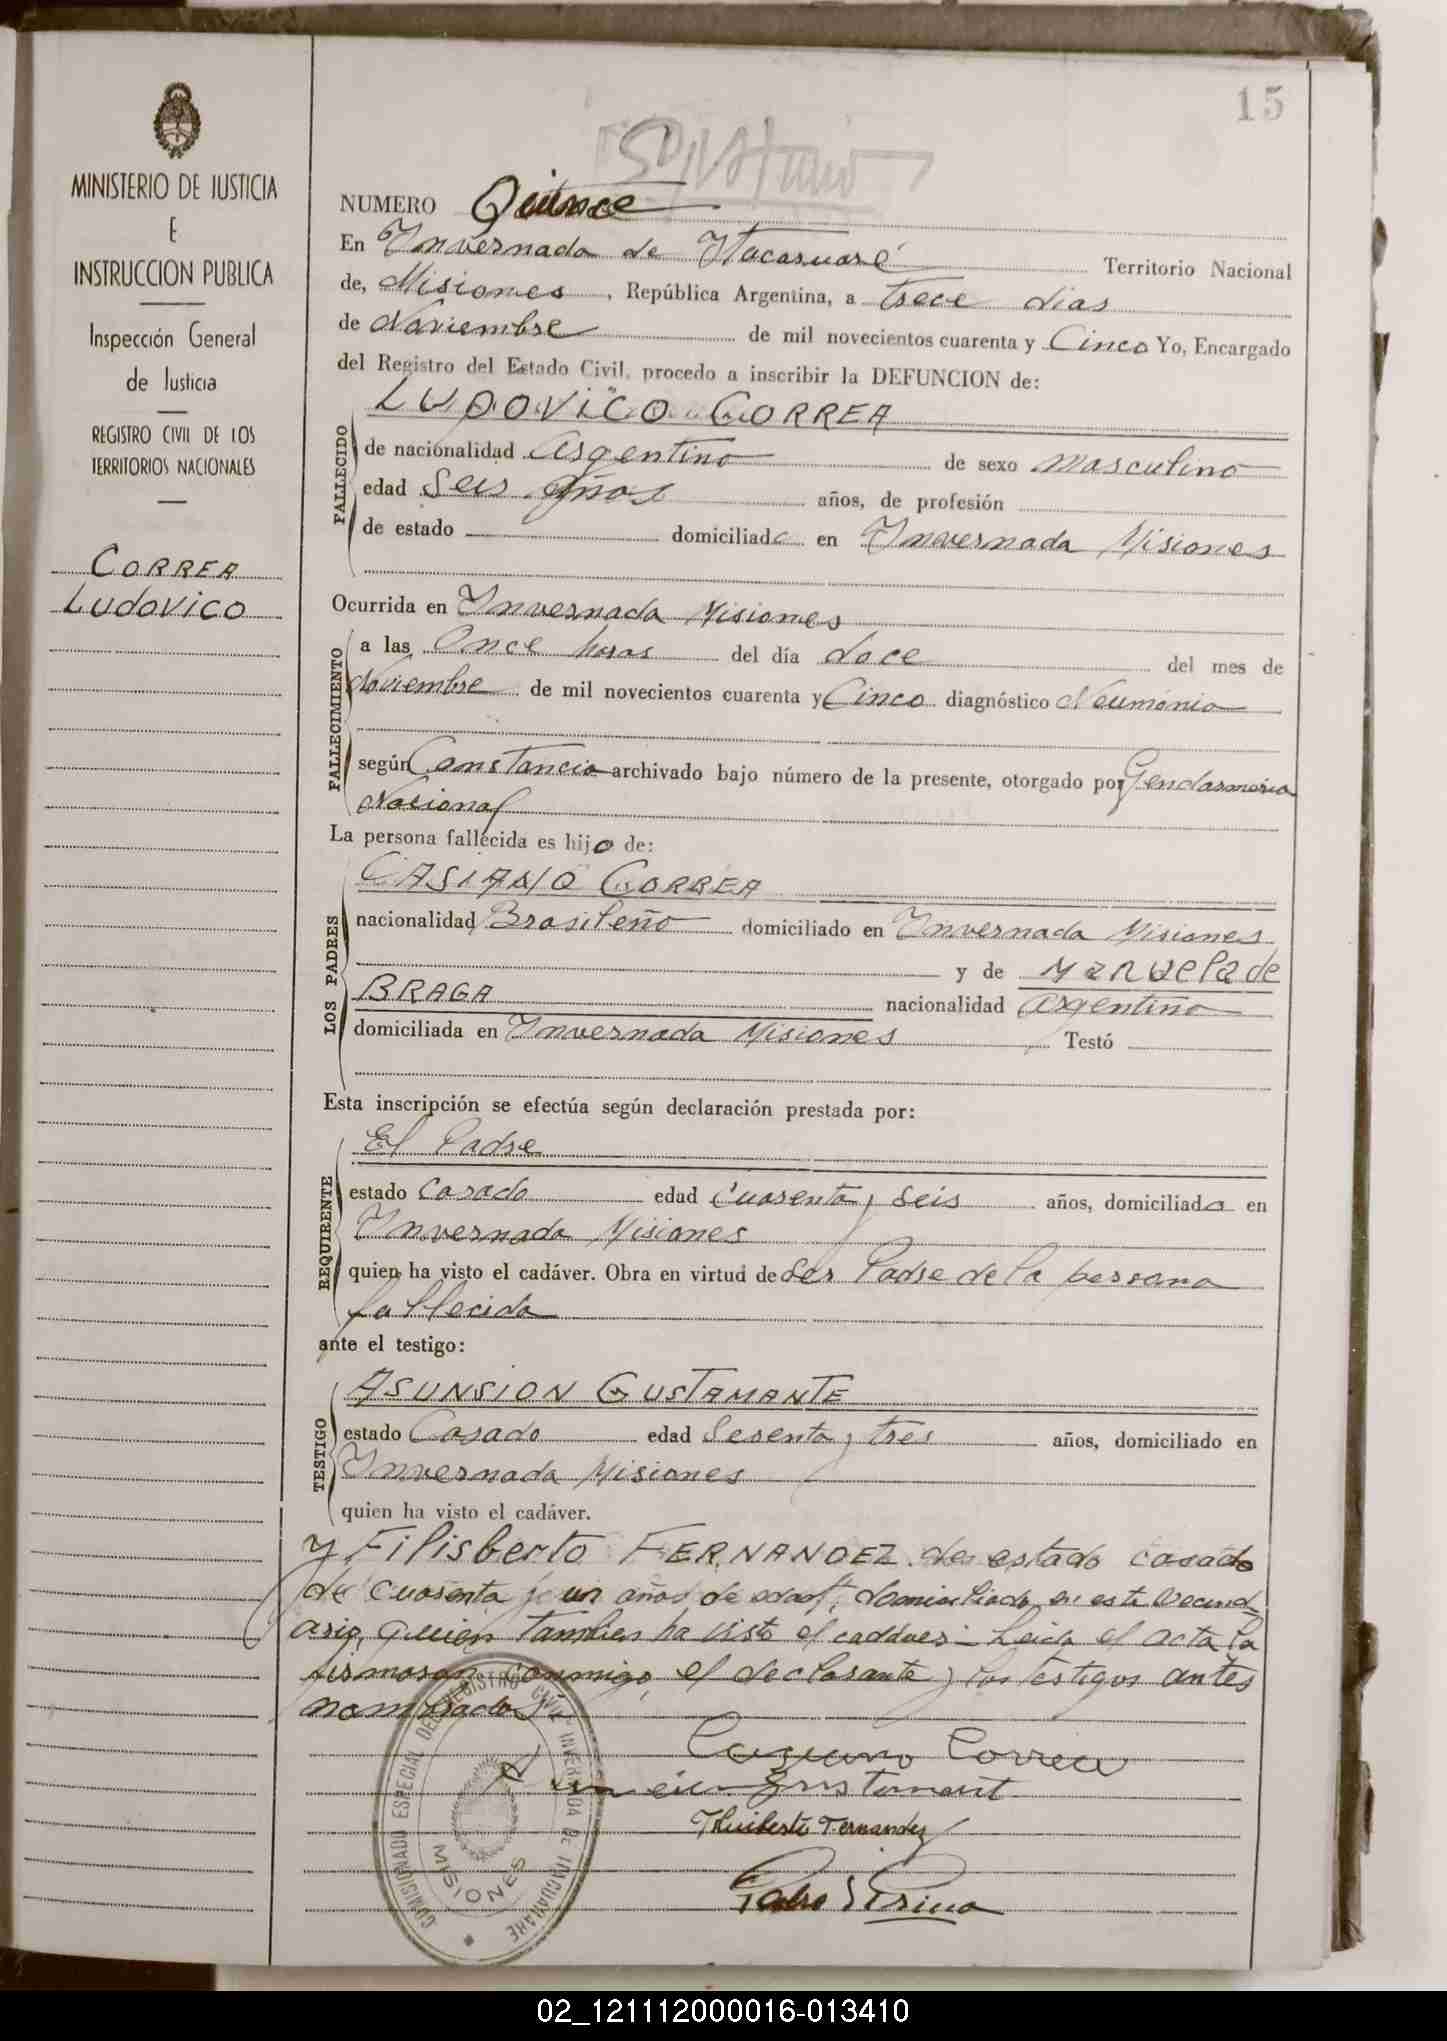 15
MINISTERIO DE JUSTICIA
E
INSTRUCCION PUBLICA
Inspección General
de Justicia
REGISTRO CIVIL DE LOS
TERRITORIOS NACIONALES
CORREA
LUDOVICO
NUMERO Quince
En Invernada de Itacaruaré Territorio Nacional
de, Misiones, República Argentina, a trece dias
de Noviembre de mil novecientos cuarenta y Cinco Yo, Encargado
del Registro del Estado Civil, procedo a inscribir la DEFUNCION de:
LUDOVICO CORREA
FALLECIDO
de nacionalidad Argentino de sexo masculino
edad Seis Años años, de profesión
de estado domiciliado en Invernada Misiones
Ocurrida en Invernada Misiones
FALLECIMIENTO
a las Once horas del día doce del mes de
Noviembre de mil novecientos cuarenta y Cinco diagnóstico Neumónia
según Constancia archivado bajo número de la presente, otorgado por Gendarmeria
Nacional
La persona fallecida es hijo de:
LOS PADRES
CASIANO CORREA
nacionalidad Brasileño domiciliado en Invernada Misiones
y de MANUELA de
BRAGA nacionalidad Argentina
domiciliada en Invernada Misiones Testó
Esta inscripción se efectúa según declaración prestada por:
REQUIRENTE
El Padre
estado Casado edad Cuarenta y Seis años, domiciliado en
Invernada Misiones
quien ha visto el cadáver. Obra en virtud de Ser Padre de la persona
fallecida
ante el testigo:
TESTIGO
ASUNSION GUSTAMANTE
estado Casado edad Sesenta y tres años, domiciliado en
Invernada Misiones
quien ha visto el cadáver.
y Filisberto FERNANDEZ de estado casado
de cuarenta y un años de edad, domiciliado en este Vecind
ario, quien tambien ha visto el cadáver - Leida el acta la
firmaron conmigo, el declarante y los testigos antes
nombrados
Correa
Filiberto Fernandez
Pedro
COMISIONADO ESPECIAL DEL REGISTRO CIVIL INVERNADA DE ITACUARARE
MISIONES
02_121112000016-013410